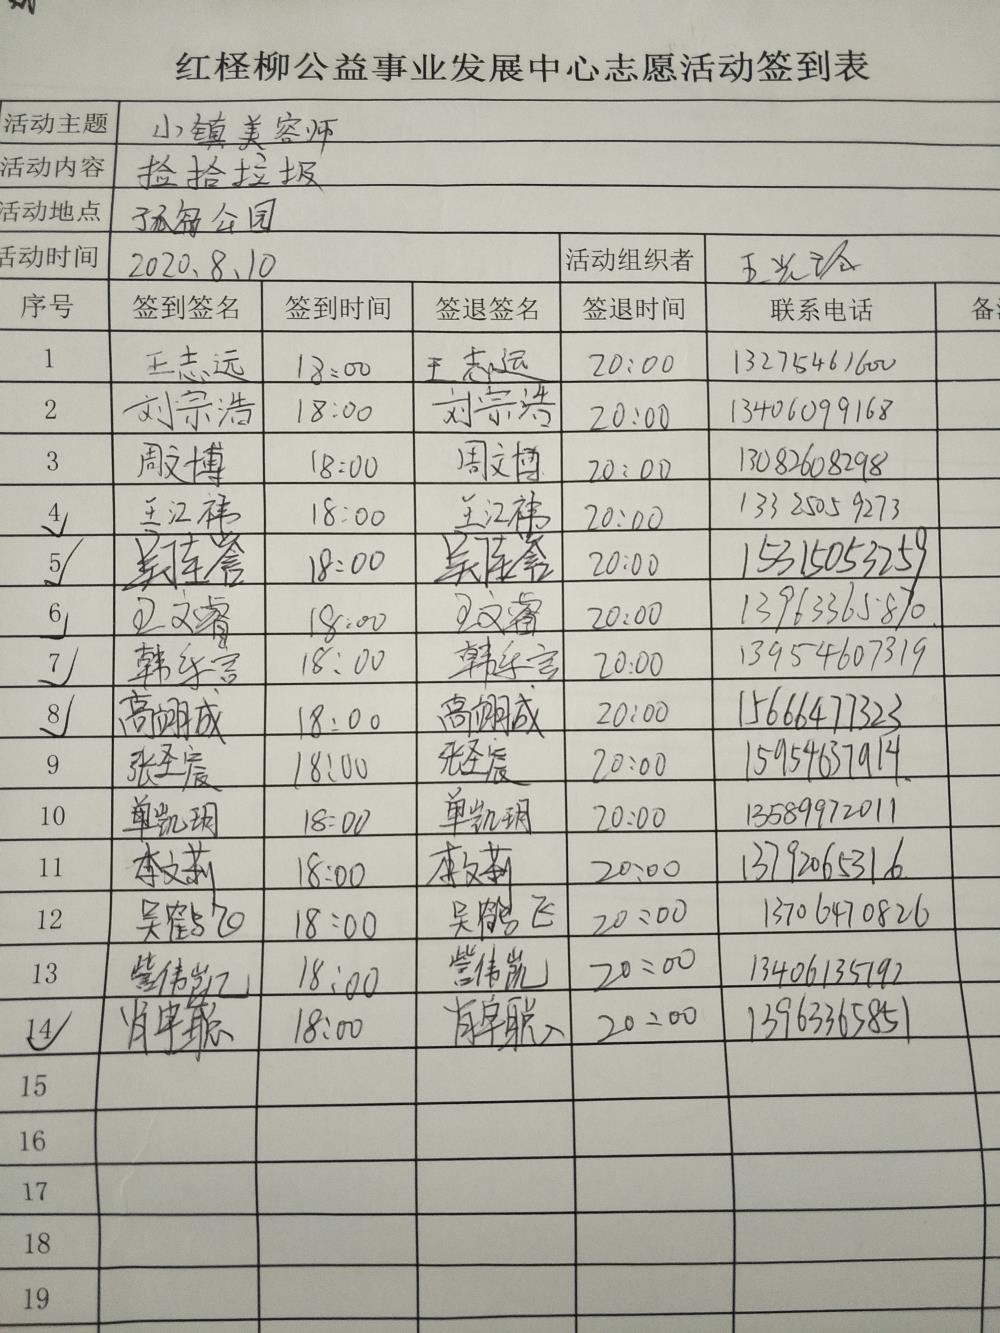 红柽柳公益事业发展中心志愿活动签到表
活动主题 小镇美容师
活动内容 捡拾垃圾
活动地点 公园
活动时间 2020.8.10 活动组织者 王
序号 签到签名 签到时间 签退签名 签退时间 联系电话 备
1 王志远 18:00 王志远 20:00 13275461600
2 刘宗浩 18:00 刘宗浩 20:00 13406099168
3 周文博 18:00 周文博 20:00 13082608298
4 王江祎 18:00 王江祎 20:00 13325059273
5 18:00 20:00 15315053259
6 王文睿 18:00 王文睿 20:00 13963365870
7 韩乐言 18:00 韩乐言 20:00 13954607319
8 高翊成 18:00 高翊成 20:00 15666477323
9 张圣宸 18:00 张圣宸 20:00 15954637914
10 单凯玥 18:00 单凯玥 20:00 13589972011
11 李文莉 18:00 李文莉 20:00 13792065316
12 吴鹤飞 18:00 吴鹤飞 20:00 13706470826
13 訾伟凯 18:00 訾伟凯 20:00 13406135192
14 肖卓聪 18:00 肖卓聪 20:00 13963365851
15
16
17
18
19